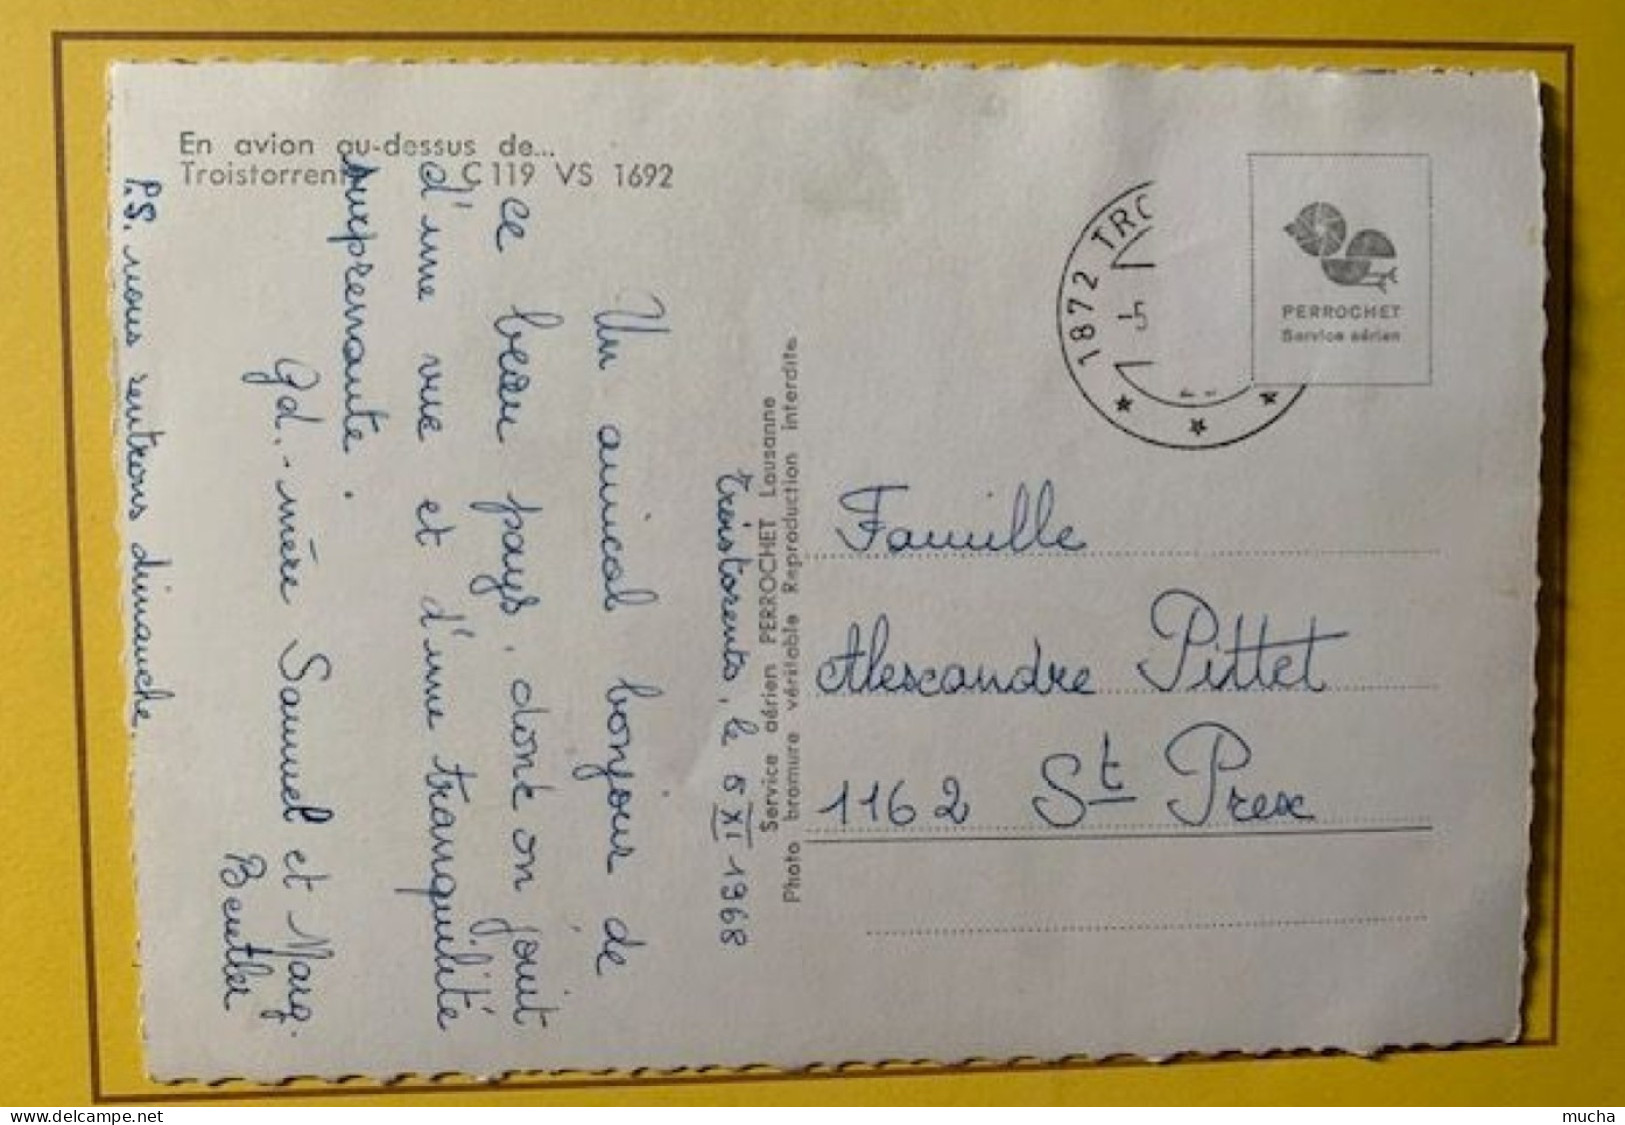 En avion au-dessus de...
Troistorrents C 119 VS 1692
Troistorents, le 5 XI 1968
Un amical bonjour de
ce beau pays, dont on jouit
d'une vue et d'une tranquilité
surprenante.
Gd.-mère Samuel et Marg.
Beutler
P.S. nous rentrons dimanche.
Service aérien PERROCHET Lausanne
Photo bromure véritable Reproduction interdite
1872 TRO
-5
PERROCHET
Service aérien
Famille
Alexandre Pittet
1162 St Prex
delcampe.net
mucha